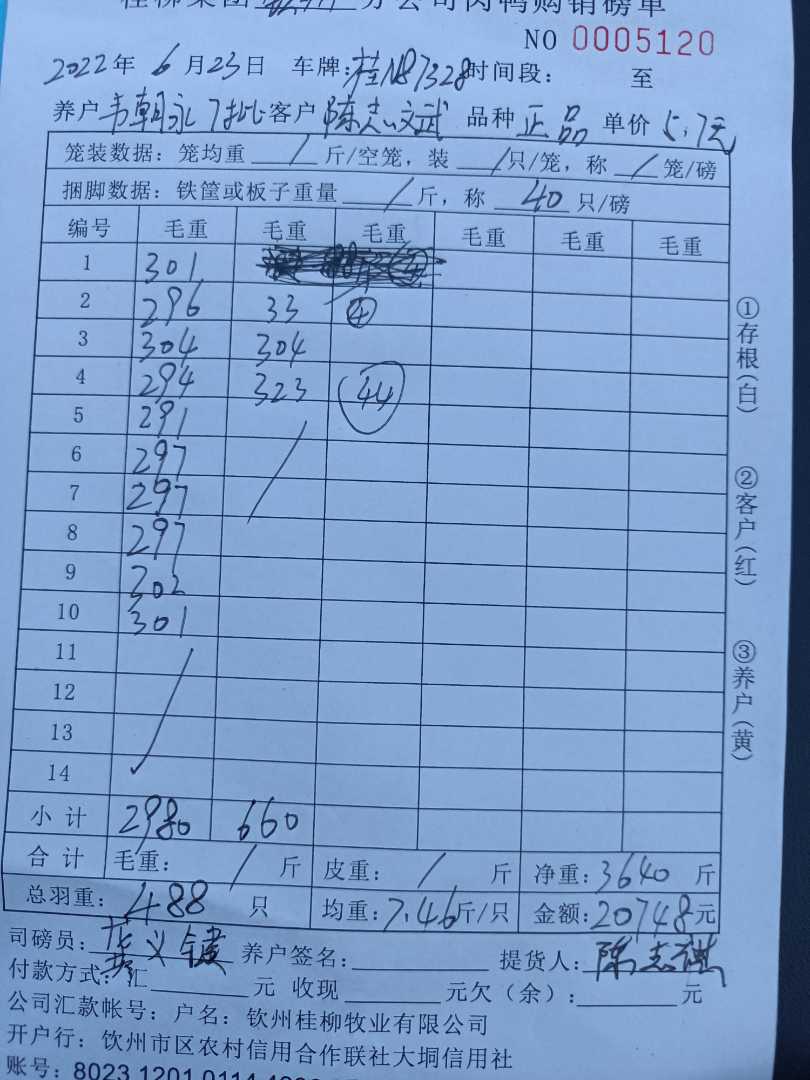 桂柳集团 分公司肉鸭购销磅单
NO 0005120
2022年 6月23日 车牌:桂N87328时间段: 至
养户韦朝永7批客户陈志文武 品种 正品 单价 5.7元
笼装数据: 笼均重 / 斤/空笼, 装 / 只/笼, 称 / 笼/磅
捆脚数据: 铁筐或板子重量 / 斤, 称 40 只/磅
编号 毛重 毛重 毛重 毛重 毛重 毛重
1 301
2 296 33 ④
3 304 304
4 294 323 44
5 291
6 297
7 297
8 297
9 302
10 301
11
12
13
14
小计 2980 660
合计 毛重: / 斤 皮重: / 斤 净重: 3640 斤
总羽重: 488 只 均重: 7.46斤/只 金额: 20748元
司磅员: 养户签名: 提货人: 陈志
付款方式: 汇 元 收现 元欠(余): 元
公司汇款帐号: 户名: 钦州桂柳牧业有限公司
开户行: 钦州市区农村信用合作联社大垌信用社
账号: 8023 1201 0114
①存根(白)
②客户(红)
③养户(黄)